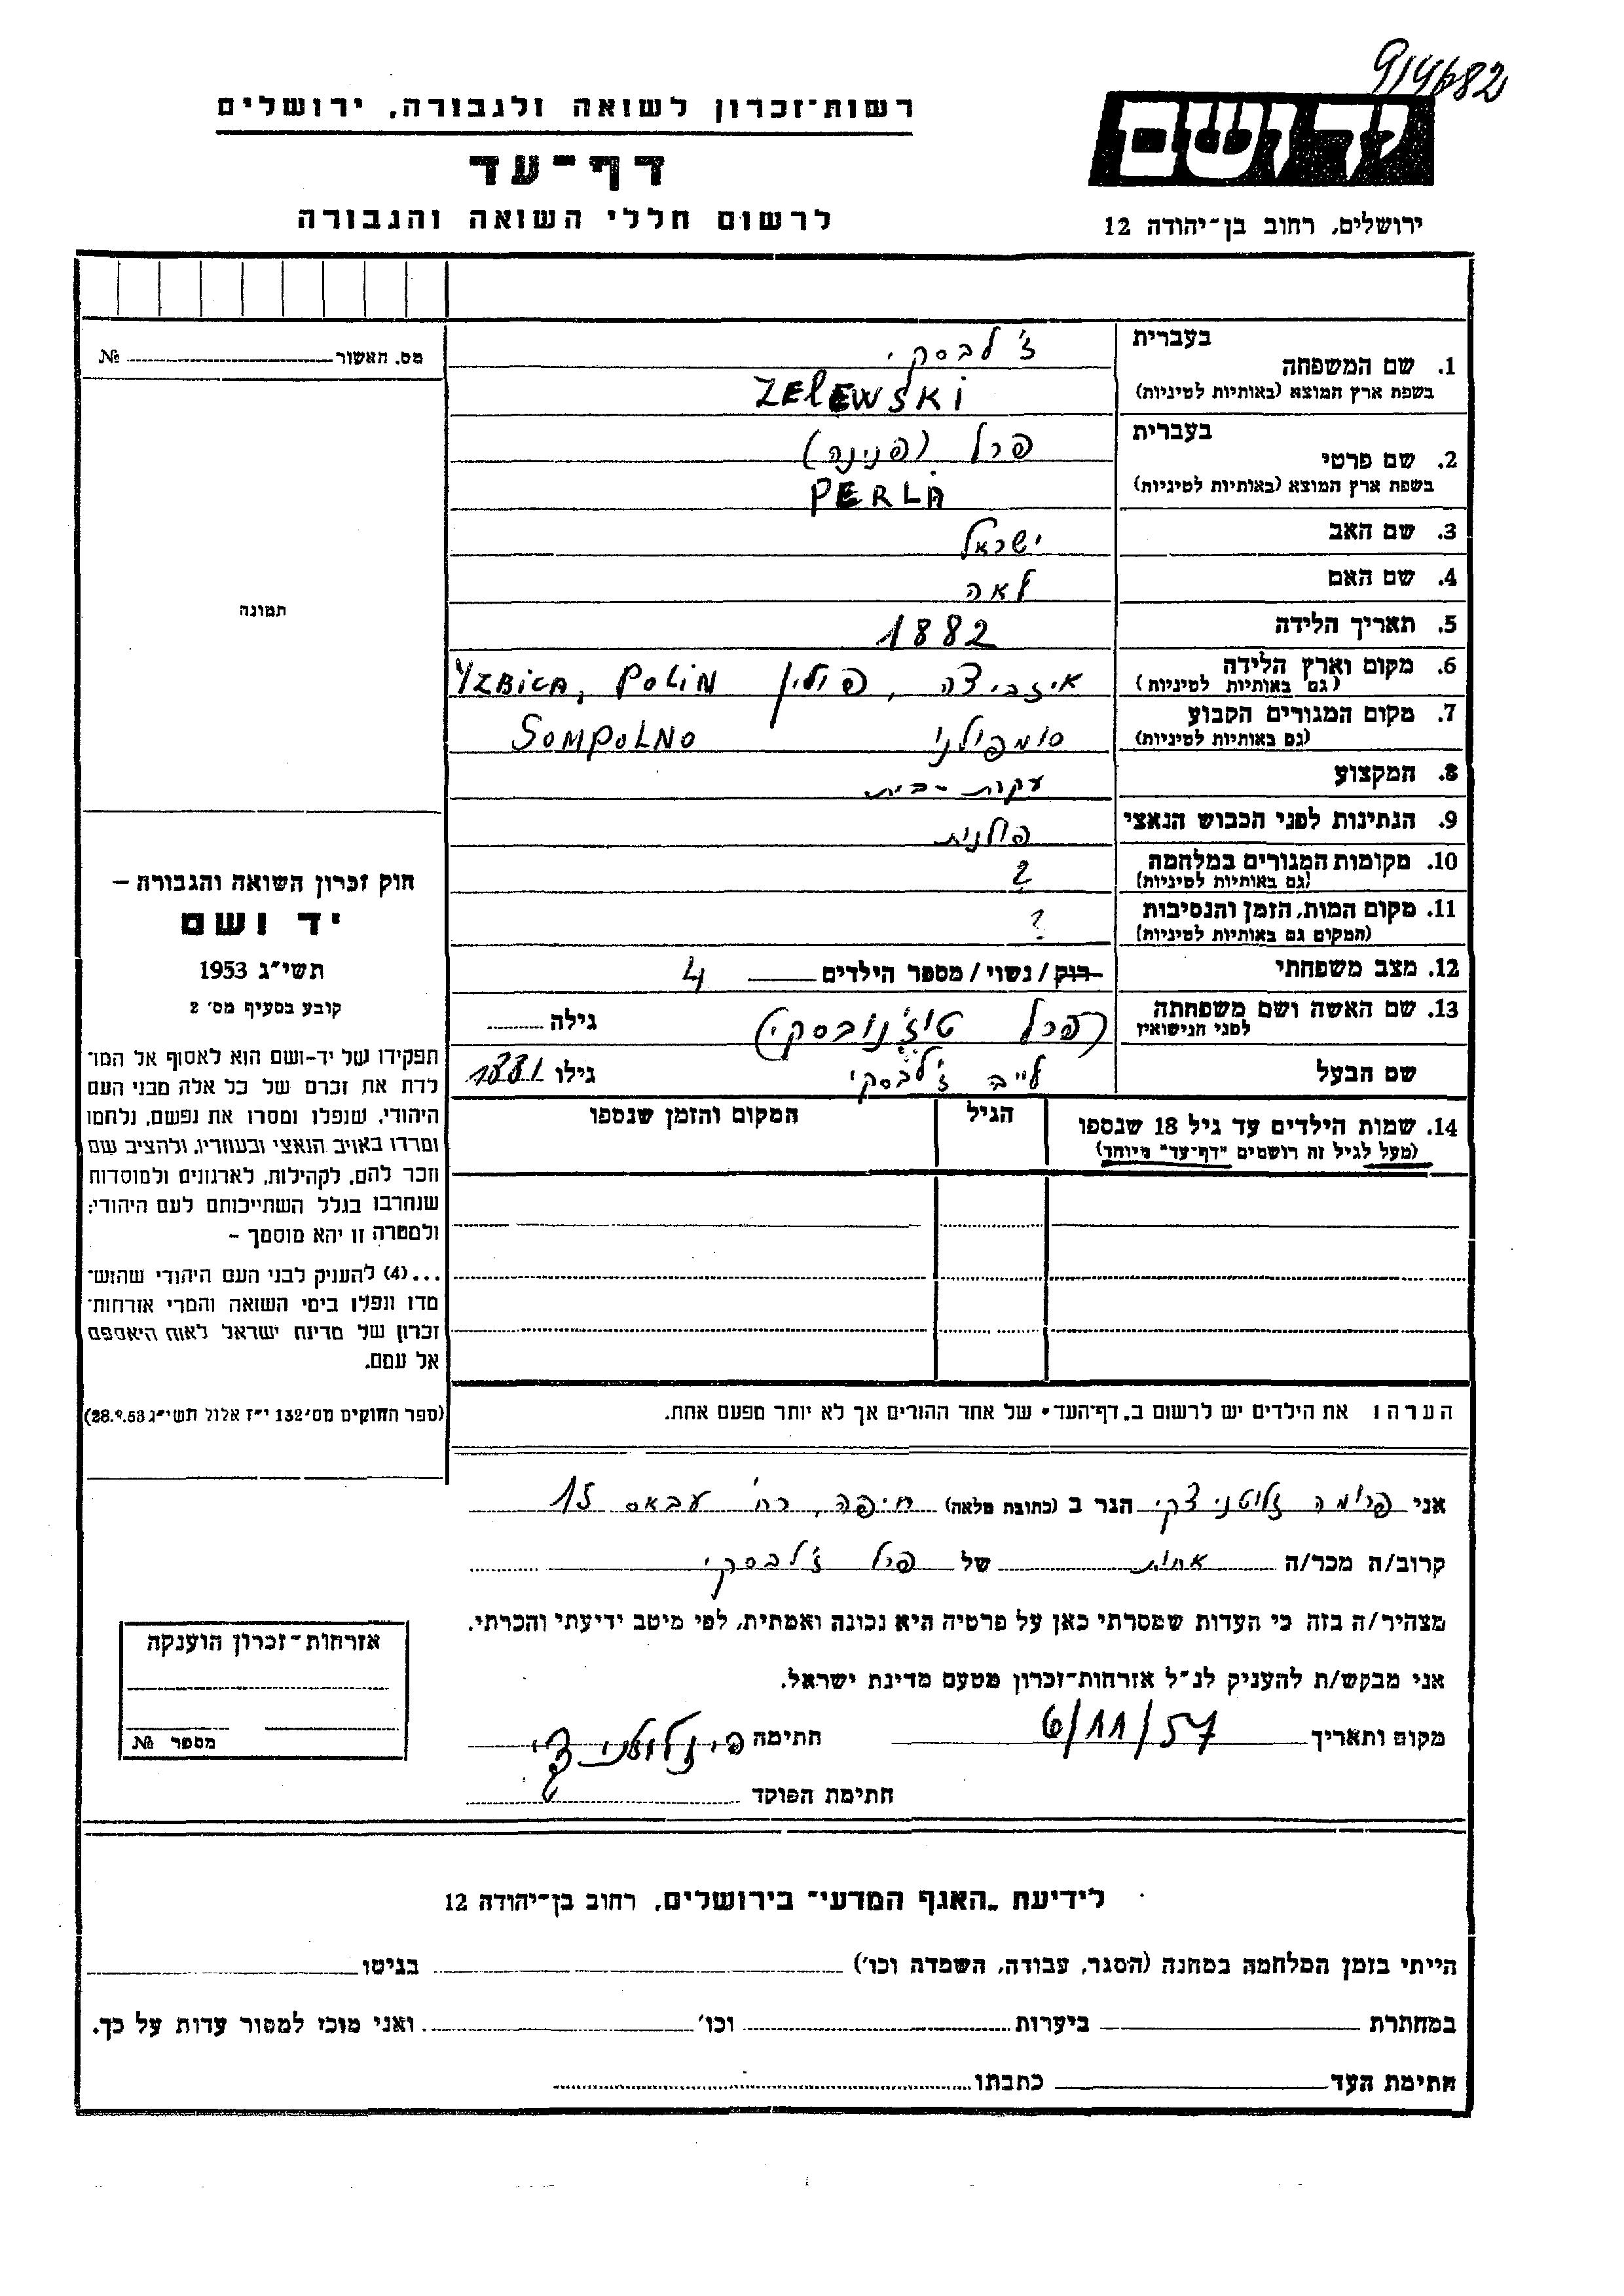 9/4682
רשות־זכרון לשואה ולגבורה, ירושלים
דף־עד
לרשום חללי השואה והגבורה
יד ושם
ירושלים, רחוב בן־יהודה 12
מס. האשור № 
תמונה
חוק זכרון השואה והגבורה –
יד ושם
תשי״ג 1953
קובע בסעיף מס׳ 2
תפקידו של יד-ושם הוא לאסוף אל המו־
לדת את זכרם של כל אלה מבני העם
היהודי, שנפלו ומסרו את נפשם, נלחמו
ומרדו באויב הנאצי ובעוזריו, ולהציב שם
וזכר להם, לקהילות, לארגונים ולמוסדות
שנחרבו בגלל השתייכותם לעם היהודי;
ולמטרה זו יהא מוסמך –
...(4) להעניק לבני העם היהודי שהוש־
מדו ונפלו בימי השואה והמרי אזרחות־
זכרון של מדינת ישראל לאות היאספם
אל עמם.
(ספר החוקים מס׳ 132 י״ז אלול תשי״ג 28.9.53)
1. שם המשפחה בעברית ז׳לבסקי
בשפת ארץ המוצא (באותיות לטיניות) ZELEWSKI
2. שם פרטי בעברית פרל (פנינה)
בשפת ארץ המוצא (באותיות לטיניות) PERLA
3. שם האב ישראל
4. שם האם לאה
5. תאריך הלידה 1882
6. מקום וארץ הלידה (גם באותיות לטיניות) איזביצה, פולין YZBICA, POLIN
7. מקום המגורים הקבוע (גם באותיות לטיניות) סומפולני SOMPOLNO
8. המקצוע עקרת-בית
9. הנתינות לפני הכבוש הנאצי פולנית
10. מקומות המגורים במלחמה (גם באותיות לטיניות) ?
11. מקום המות, הזמן והנסיבות (המקום גם באותיות לטיניות) ?
12. מצב משפחתי רוק/נשוי/מספר הילדים 4
13. שם האשה ושם משפחתה לפני הנישואין (פרל טוז׳נובסקי) גילה
שם הבעל לייב ז׳לבסקי גילו 1881
14. שמות הילדים עד גיל 18 שנספו הגיל המקום והזמן שנספו
(מעל לגיל זה רושמים "דף־עד" מיוחד)
הערה: את הילדים יש לרשום ב„דף־העד" של אחד ההורים אך לא יותר מפעם אחת.
אני פרומה זלוטניצקי הגר ב (כתובת מלאה) חיפה, רח׳ עבאס 15
קרוב/ה מכר/ה אחות של פרל ז׳לבסקי
מצהיר/ה בזה כי העדות שמסרתי כאן על פרטיה היא נכונה ואמתית, לפי מיטב ידיעתי והכרתי.
אני מבקש/ת להעניק לנ״ל אזרחות־זכרון מטעם מדינת ישראל.
מקום ותאריך 6/11/57 חתימה פ. זלוטניצקי
חתימת הפוקד
אזרחות־זכרון הוענקה
מספר №
לידיעת „האגף המדעי" בירושלים, רחוב בן־יהודה 12
הייתי בזמן המלחמה במחנה (הסגר, עבודה, השמדה וכו׳) בגיטו
במחתרת ביערות וכו׳ ואני מוכן למסור עדות על כך.
חתימת העד כתבתו